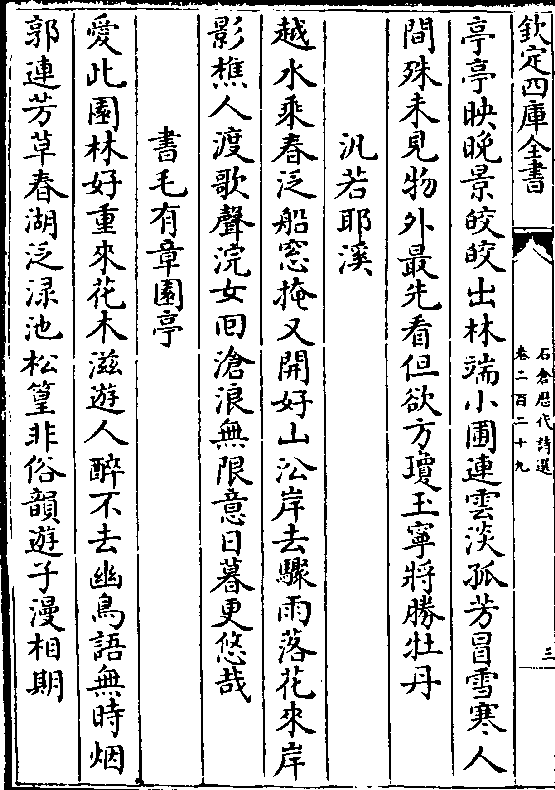 欽定四庫全書
石倉歴代詩選
卷二百二十九
三
亭亭映晚景皎皎出林端小圃連雲淡孤芳冒雪寒人
間殊未見物外最先看但欲方瓊玉寧將勝牡丹
汎若耶溪
越水乘春泛船窓掩又開好山㳂岸去驟雨落花來岸
影樵人渡歌聲浣女回滄浪無限意日暮更悠哉
書毛有章園亭
愛此園林好重來花木滋遊人醉不去幽鳥語無時烟
郭連芳草春湖泛渌池松篁非俗韻遊子漫相期